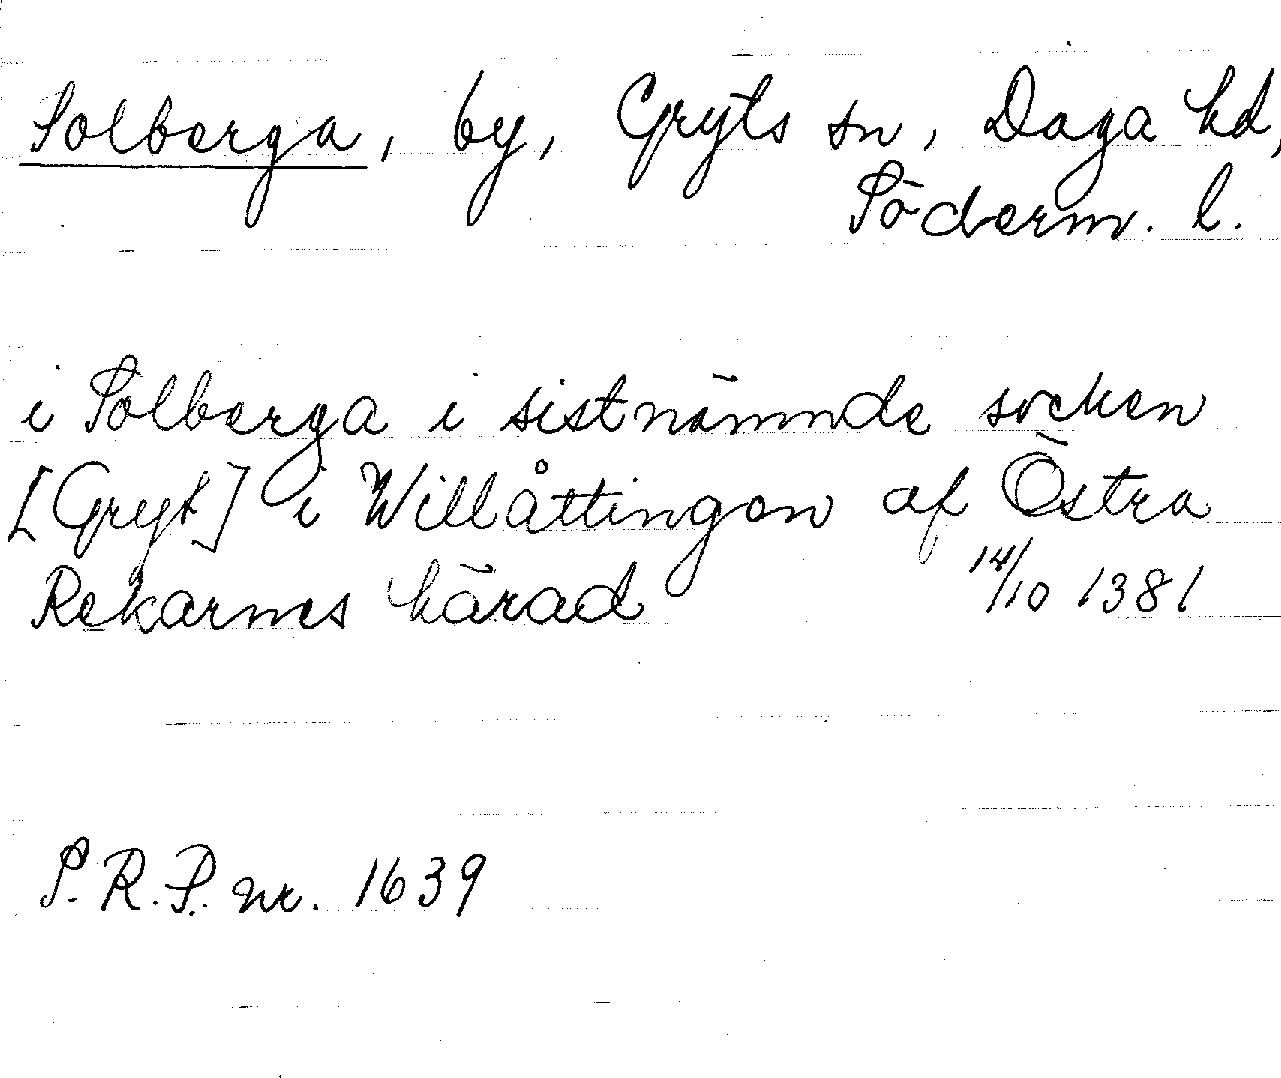 Solberga, by, Gryts sn, Daga hd,
Söderm. l.
i Solberga i sistnämnde socken
[Gryt] i Willåttingen af Östra
Rekarnes härad 14/10 1381
S.R.P. nr. 1639